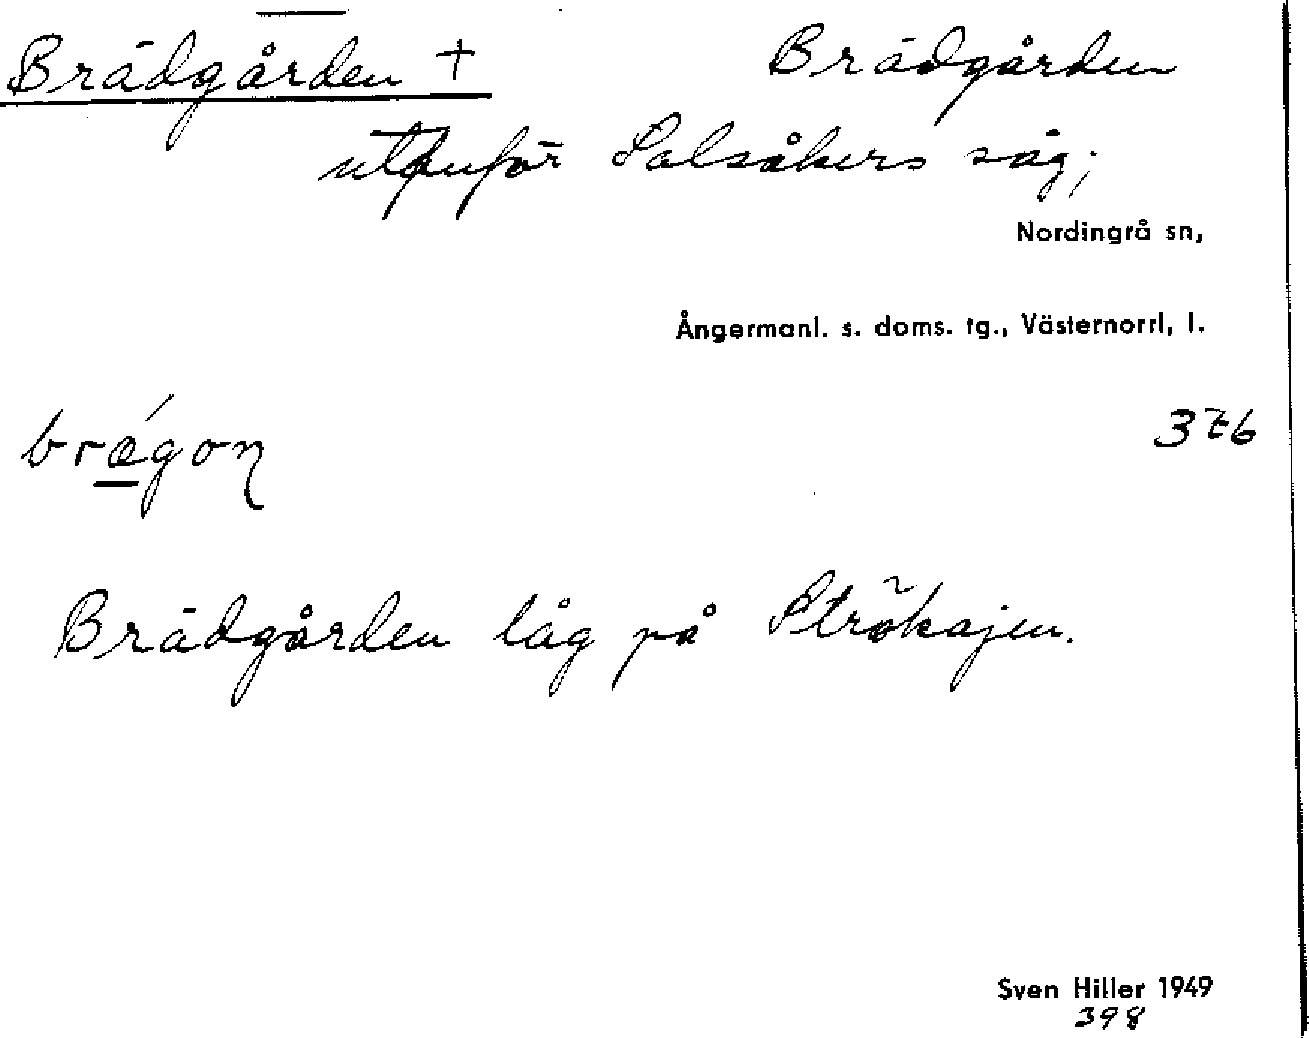 Brädgården + Brädgården
utanför Salsåkers såg;
Nordingrå sn,
Ångermanl. s. doms. tg., Västernorrl, l.
brægon 3 t 6
Brädgården låg på Strökajen.
Sven Hiller 1949
398